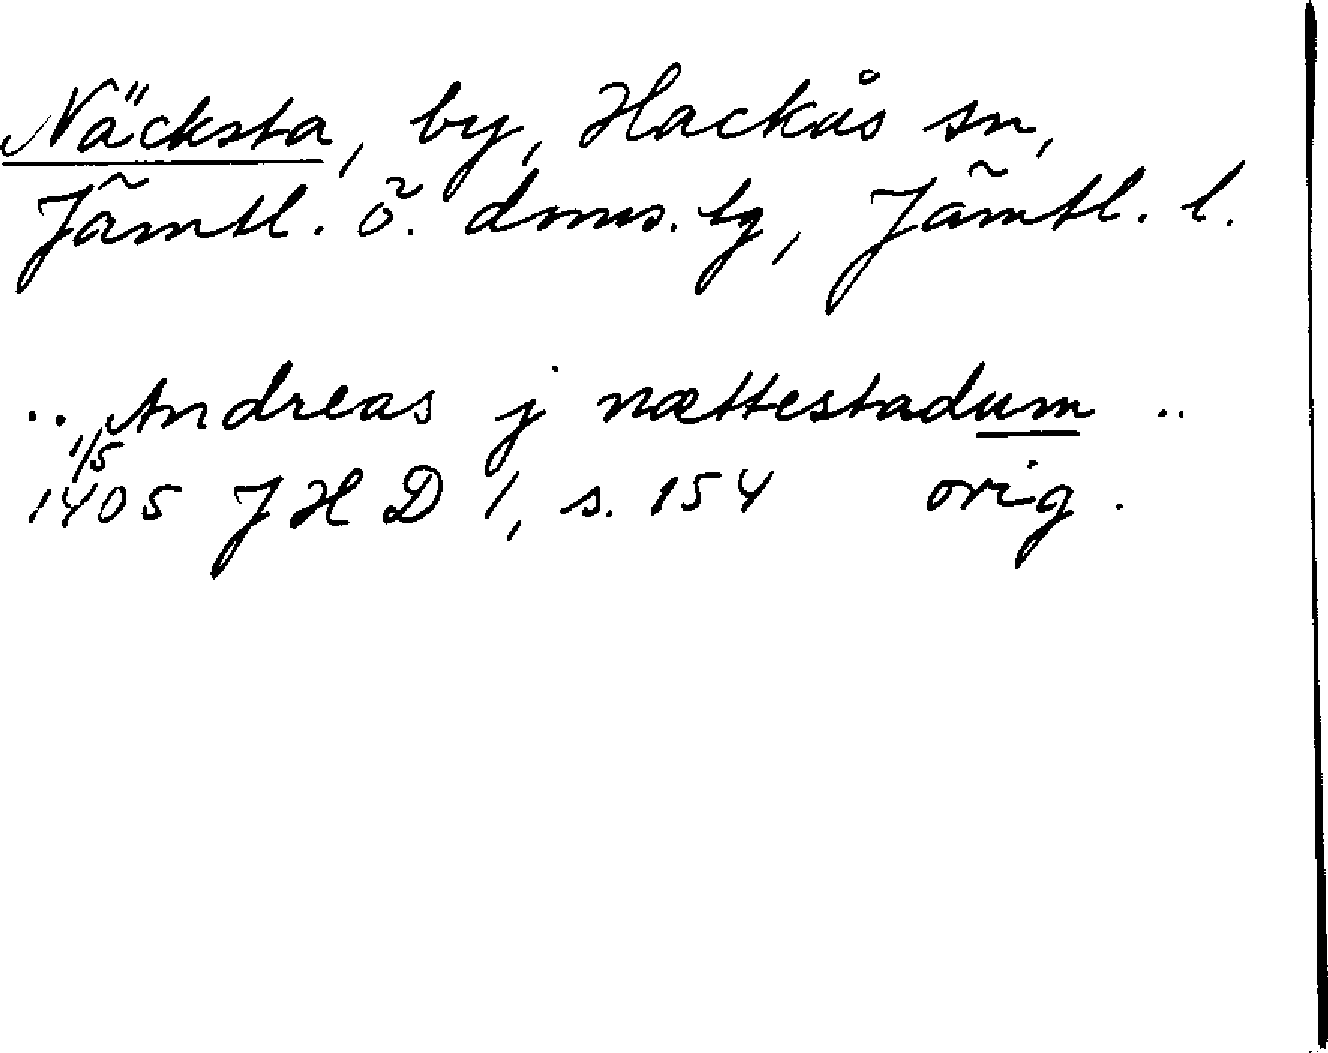 Näcksta, by, Hackås sn,
Jämtl. ö. doms. tg, Jämtl. l.
.. Andreas j nættestadum ..
1/5
1405 JHD 1, s. 154 orig.